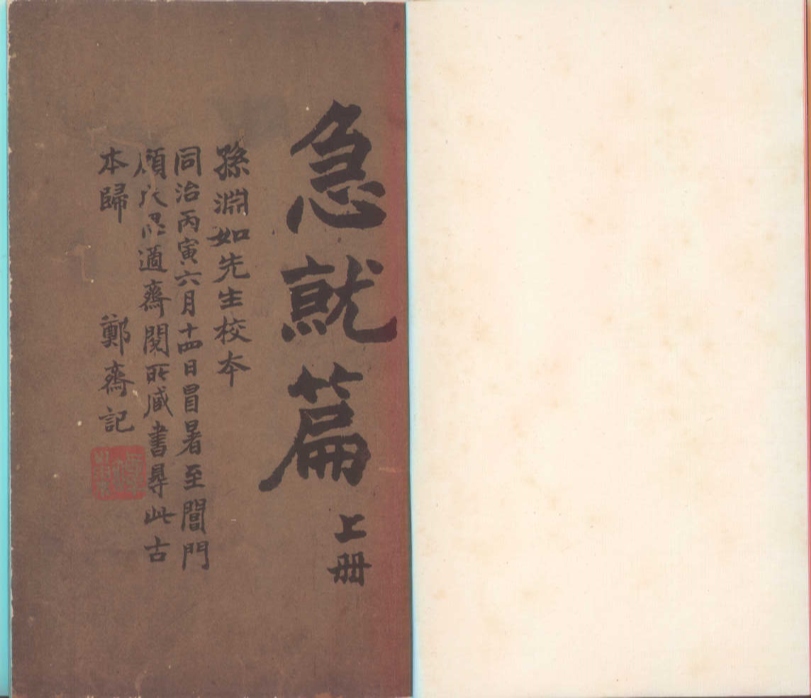 急就篇 上册
孫淵如先生校本
同治丙寅六月十四日冒暑至閶門
顧氏過齋閱所藏書尋此古
本歸 鄭齋記